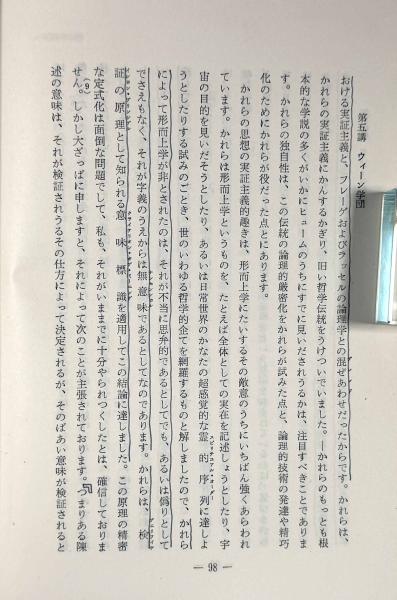 第五講　ウィーン学団
おける実証主義と、フレーゲおよびラッセルの論理学との混ぜあわせだったからです。かれらは、
かれらの実証主義にかんするかぎり、旧い哲学伝統をうけついでいました。―かれらのもっとも根
本的な学説の多くがいかにヒュームのうちにすでに見いだされうるかは、注目すべきことでありま
す。かれらの独自性は、この伝統の論理的厳密化をかれらが試みた点と、論理的技術の発達や精巧
化のためにかれらが役だった点とにあります。
かれらの思想の実証主義的趣きは、形而上学にたいするその敵意のうちにいちばん強くあらわれ
ています。かれらは形而上学というものを、たとえば全体としての実在を記述しょうとしたり、宇
宙の目的を見いだそうとしたり、あるいは日常世界のかなたの超感覚的な霊的序列に達しよ
うとしたりする試みのごとき、世のいわゆる哲学的企てを網羅するものと解しましたので、かれら
によって形而上学が非とされたのは、それが不当に思弁的であるとしてでも、あるいは偽りとして
でさえもなく、それが字義のうえからは無意味であるとしてなのであります。かれらは、検
証の原理として知られる意味標識を適用してこの結論に達しました。この原理の精密
な定式化は面倒な問題でして、私も、それがいままでに十分やられつくしたとは、確信しておりま
せん。(9)しかし大ざっぱに申しますと、それによって次のことが主張されております。つまりある陳
述の意味は、それが検証されうるその仕方によって決定されるが、そのばあい意味が検証されると
— 98 —